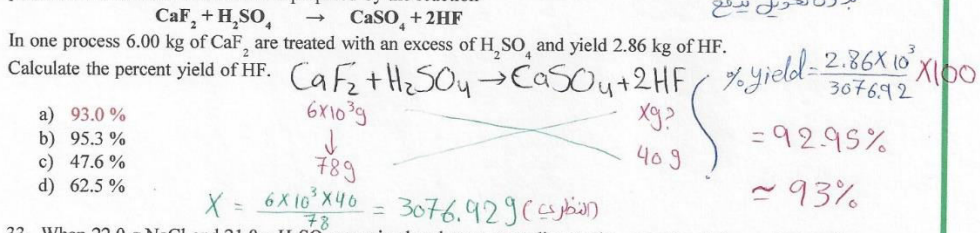 CaF₂ + H₂SO₄ → CaSO₄ + 2HF
In one process 6.00 kg of CaF₂ are treated with an excess of H₂SO₄ and yield 2.86 kg of HF.
Calculate the percent yield of HF.
CaF₂ + H₂SO₄ → CaSO₄ + 2HF
6×10³g xg?
↓
78g 40g
a) 93.0 %
b) 95.3 %
c) 47.6 %
d) 62.5 %
X = 6×10³×40 / 78 = 3076.92g (النظري)
% yield = 2.86×10³ / 3076.92 ×100
= 92.95%
≃ 93%